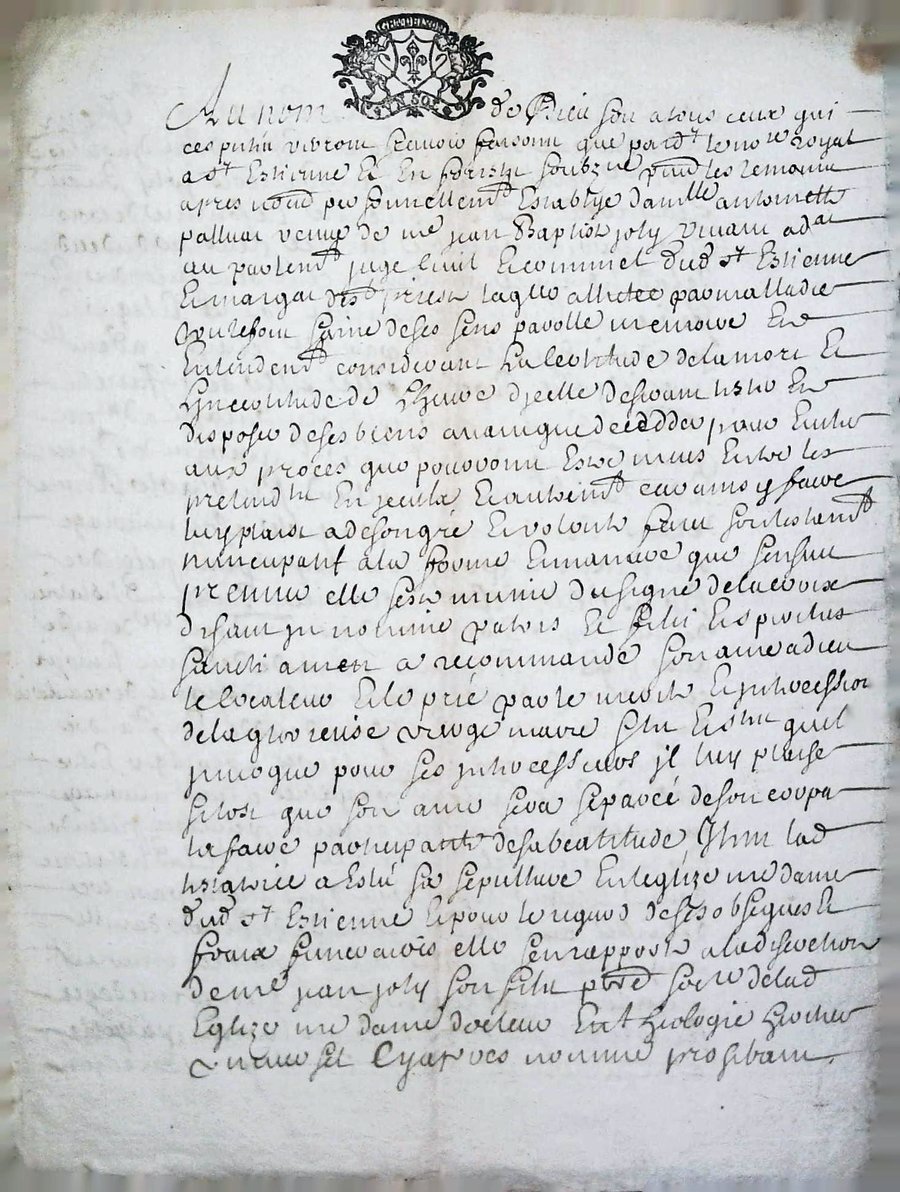 UN SOL
Au nom de Dieu soit a tous ceux qui
ces puntes verront scavoir faisons que pard^t le no^re royal
a S^t Estienne et en forestz soubzne pnts les temoins
apres nomd personnellem^t establye dam^lle antoinette
palluat veuve de me jean Baptiste joly vivant ad^at
au parlem^t juge civil et criminel dud S^t Estienne
laqlle allitee par malladie
touteffois saine de ses sens parolle memoire et
entendem^t considerant la certitude de la mort et
lincertitude de lheure dicelle desirant tester et
disposer de ses biens avant que decedder pour eviter
aux proces que pourroint estre mus entre les
pretend^ts en jcelle et autrem^t car ainsy faire
luy plaist a de son gré et volonte fait son testam^t
nuncupatif a la forme et maniere que sensuit
premier elle sest munie du signe de la croix
disant jn nomine patris et filii et spiritus
sancti amen a recommandé son ame a dieu
le createur et la prié par le merite et jntercession
de la glorieuse vierge marie Stz et Stes quil
jnvoque pour ses jntercesseurs jl luy plaise
sitost que son ame sera separée de son corps
la faire participante de sa beatitude Jtem lad
testatrice a eslu sa sepulture en leglize nre dame
dud S^t Estienne et pour le regard de ses obseques et
fraix funeraires elle sen rapporte a la discretion
de me jean joly son filz pbre soc^re de lad
Eglize nre dame docteur en thiologie heritier
universel cy apres nommé prohibant